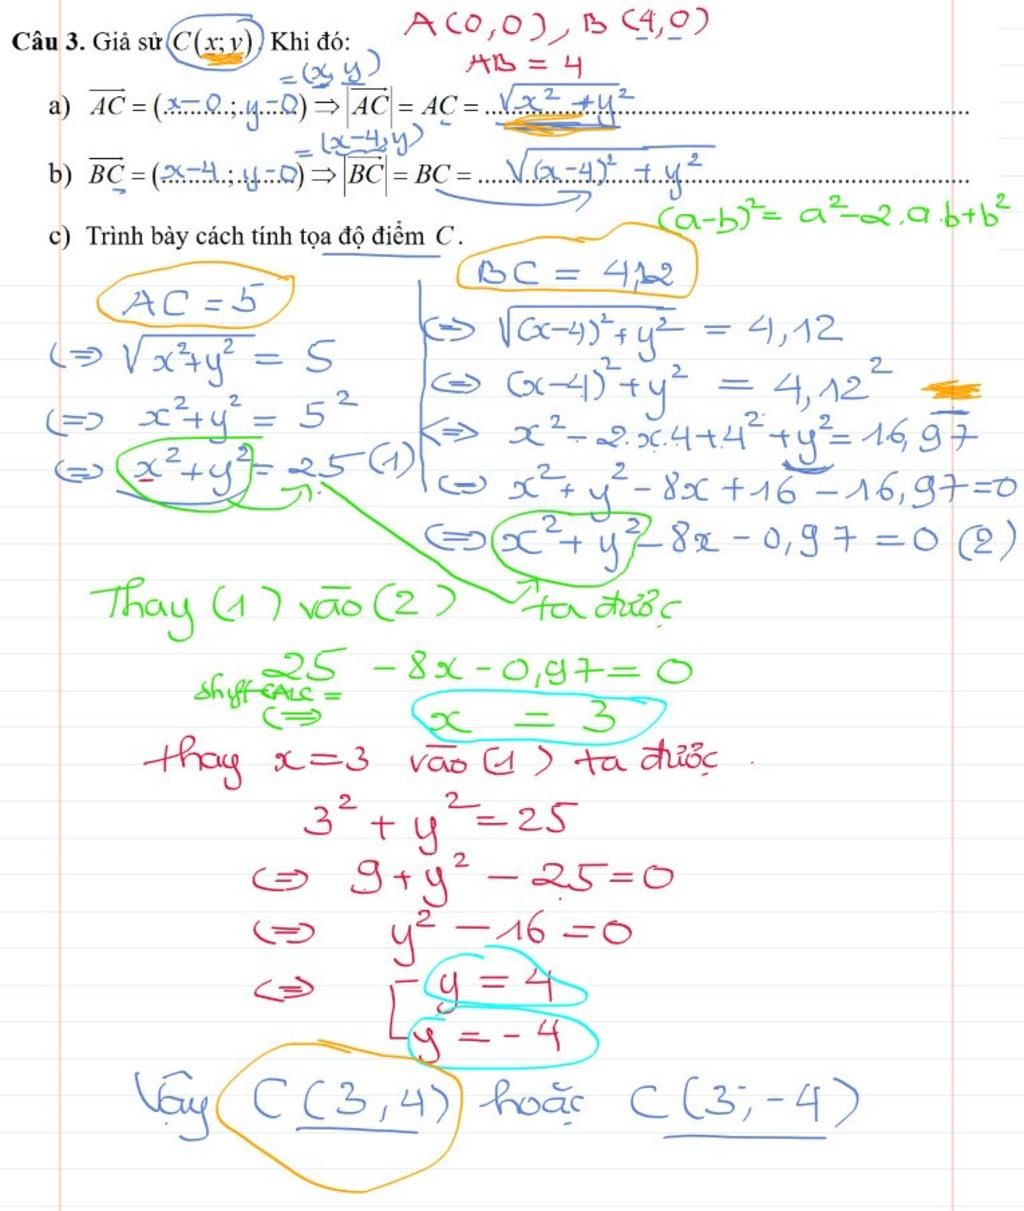 A(0,0), B(4,0)
Câu 3. Giả sử C(x; y). Khi đó:
AB = 4
= (x, y)
a) AC = (x-0.; y-0) ⇒ |AC| = AC = √x² + y²
= (x-4, y)
b) BC = (x-4.; y-0) ⇒ |BC| = BC = √(x-4)² + y²
(a-b)² = a² - 2.a.b + b²
c) Trình bày cách tính tọa độ điểm C.
AC = 5
⇔ √x²+y² = 5
⇔ x²+y² = 5²
⇔ x²+y² = 25 (1)
BC = 4,12
⇔ √(x-4)²+y² = 4,12
⇔ (x-4)²+y² = 4,12²
⇔ x² - 2.x.4+4²+y² = 16,97
⇔ x²+y² - 8x + 16 - 16,97 = 0
⇔ x²+y² - 8x - 0,97 = 0 (2)
Thay (1) vào (2) ta được
25 - 8x - 0,97 = 0
shift CALC =
⇔ x = 3
thay x = 3 vào (1) ta được.
3² + y² = 25
⇔ 9 + y² - 25 = 0
⇔ y² - 16 = 0
⇔ [ y = 4
y = -4
Vậy C(3,4) hoặc C(3;-4)